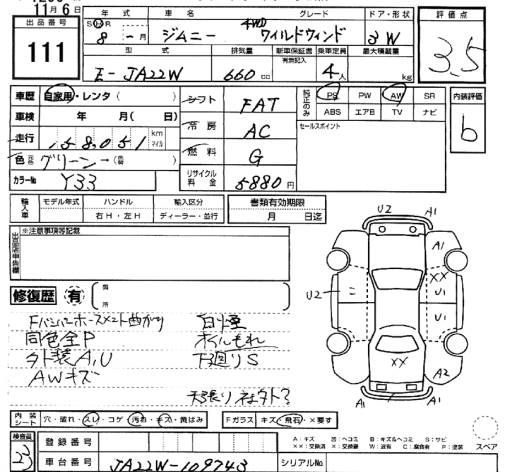 11月6日
出品番号
111
年式 車名 グレード ドア・形状
S H R 8 - 月 ジムニー 4WD ワイルドウィンド 3W
型式 排気量 新車保証書 有無記入 乗車定員 最大積載量
E-JA22W 660 cc 4人 kg
評価点
3.5
車歴 自家用・レンタ( )
車検 年 月( 日)
走行 158,051 km マイル
色 元色 グリーン→( 色替 )
カラーNo Y33
シフト FAT
冷房 AC
燃料 G
リサイクル料金 5880円
純正のみ PS PW AW SR
ABS エアB TV ナビ
セールスポイント
内装評価
b
輸入車 モデル年式 ハンドル 輸入区分
右H・左H ディーラー・並行
書類有効期限
月 日迄
出品店申告欄 ※注意事項等記載
修復歴 有 箇所
Fバンパーホースメント曲がり 白煙
同色全P オイルもれ
外装A,U 下廻りS
AWキズ
天張りネタト?
U2 A1
A1
XX
U2 U1
U1
XX A2
A1 A1
内装シート 穴・破れ・スレ・コゲ 汚れ・キズ・黄ばみ Fガラス キズ・飛石・×要す
検査員 23
登録番号
車台番号 JA22W-109743 シリアルNo
A:キズ 凹:ヘコミ B:キズ&ヘコミ S:サビ
××:交換済 X:交換要 W:波有 C:腐食有 P:塗装
スペア